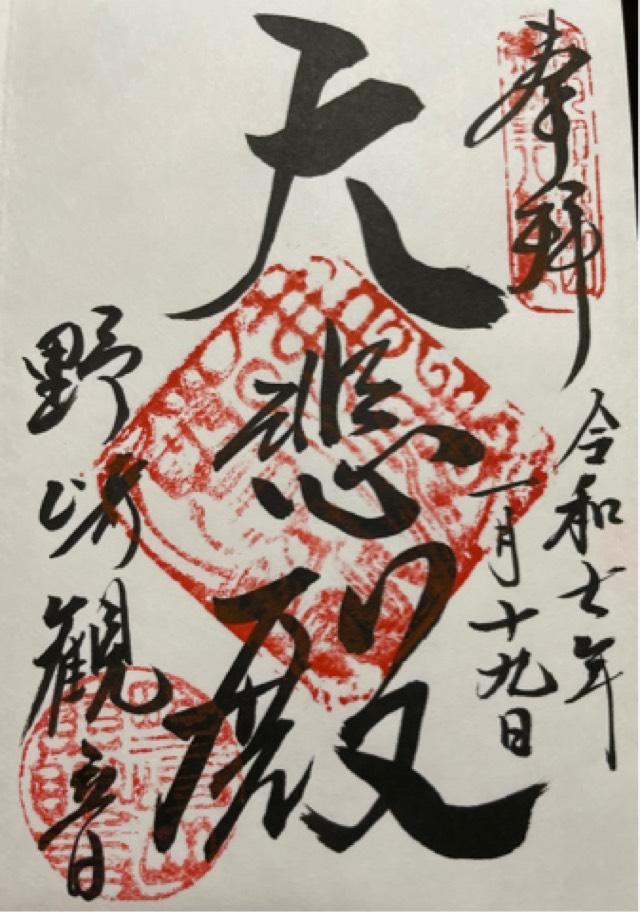 奉拝
令和七年
一月十九日
大悲殿
野崎観音